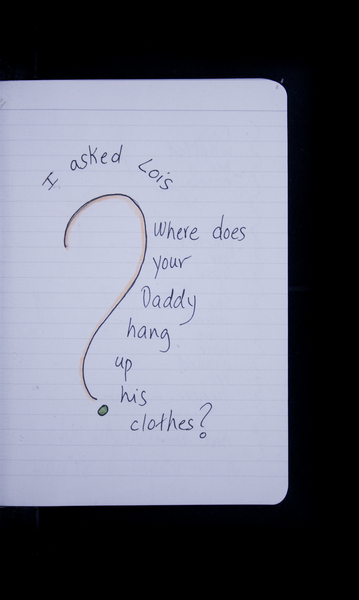 I asked Lois
Where does
your
Daddy
hang
up
his
clothes?